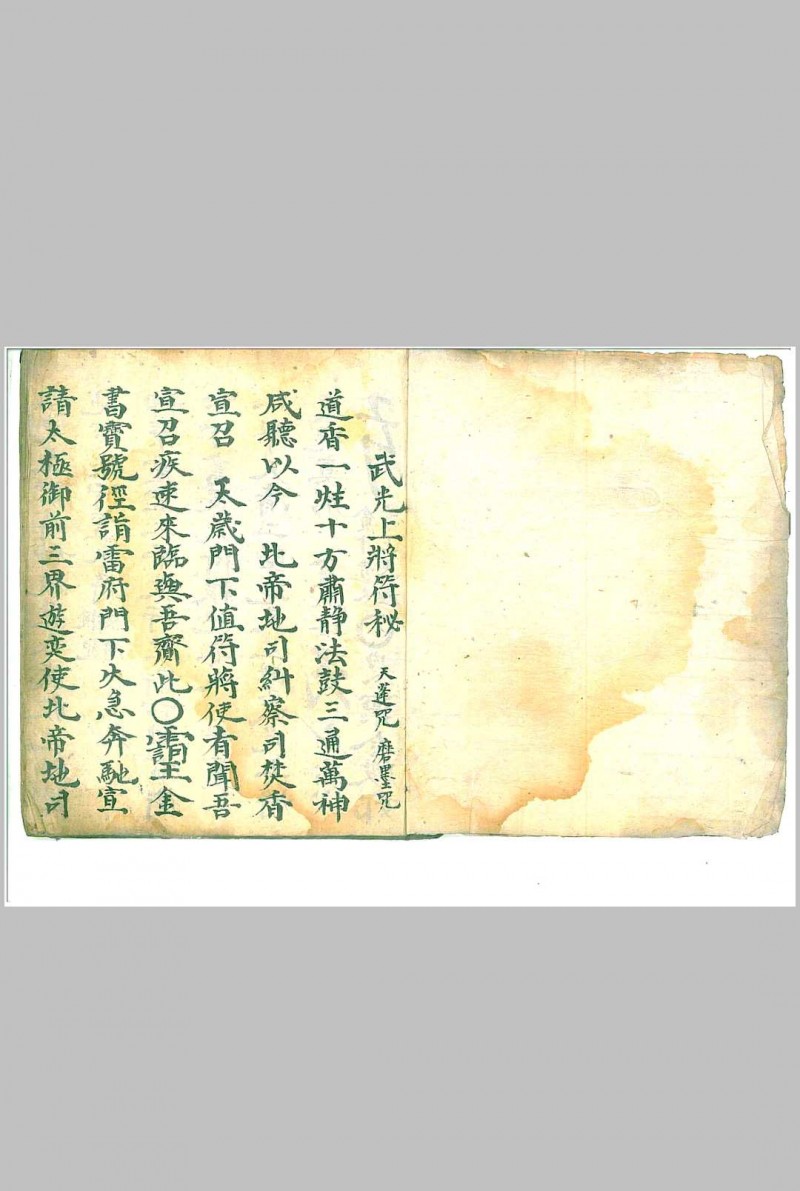 武光上將符秘 天蓬咒 磨墨咒
道香一炷十方肅靜法鼓三通萬神
咸聽以今 北帝地司糾察司焚香
宣召 天歲門下值符將使者聞吾
宣召疾速來臨與吾齎此〇玉金
書寶號徑詣雷府門下火急奔馳宣
請太極御前三界遊奕使北帝地司